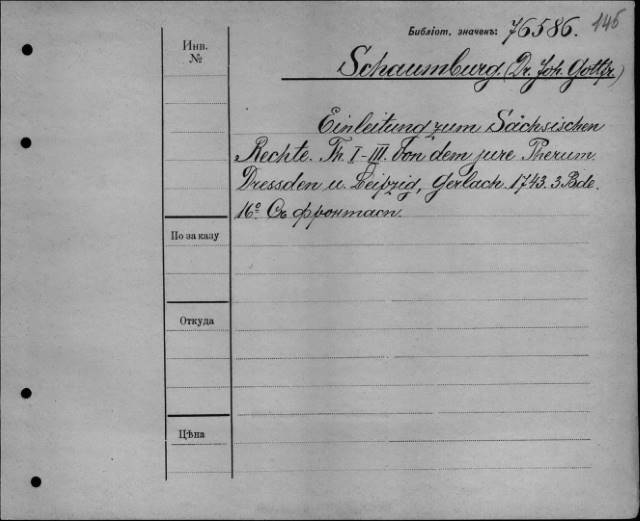 145
Библіот. значенъ: 76586.
Инв.
№
Schaumburg. (Dr. Joh. Gottfr.)
Einleitung zum Sächsischen
Rechte. Th. I-III. Von dem jure Rherum.
Dressden u. Leipzig, Gerlach. 1743. 3 Bde.
16º. Съ фронтасп.
По заказу
Откуда
Цѣна